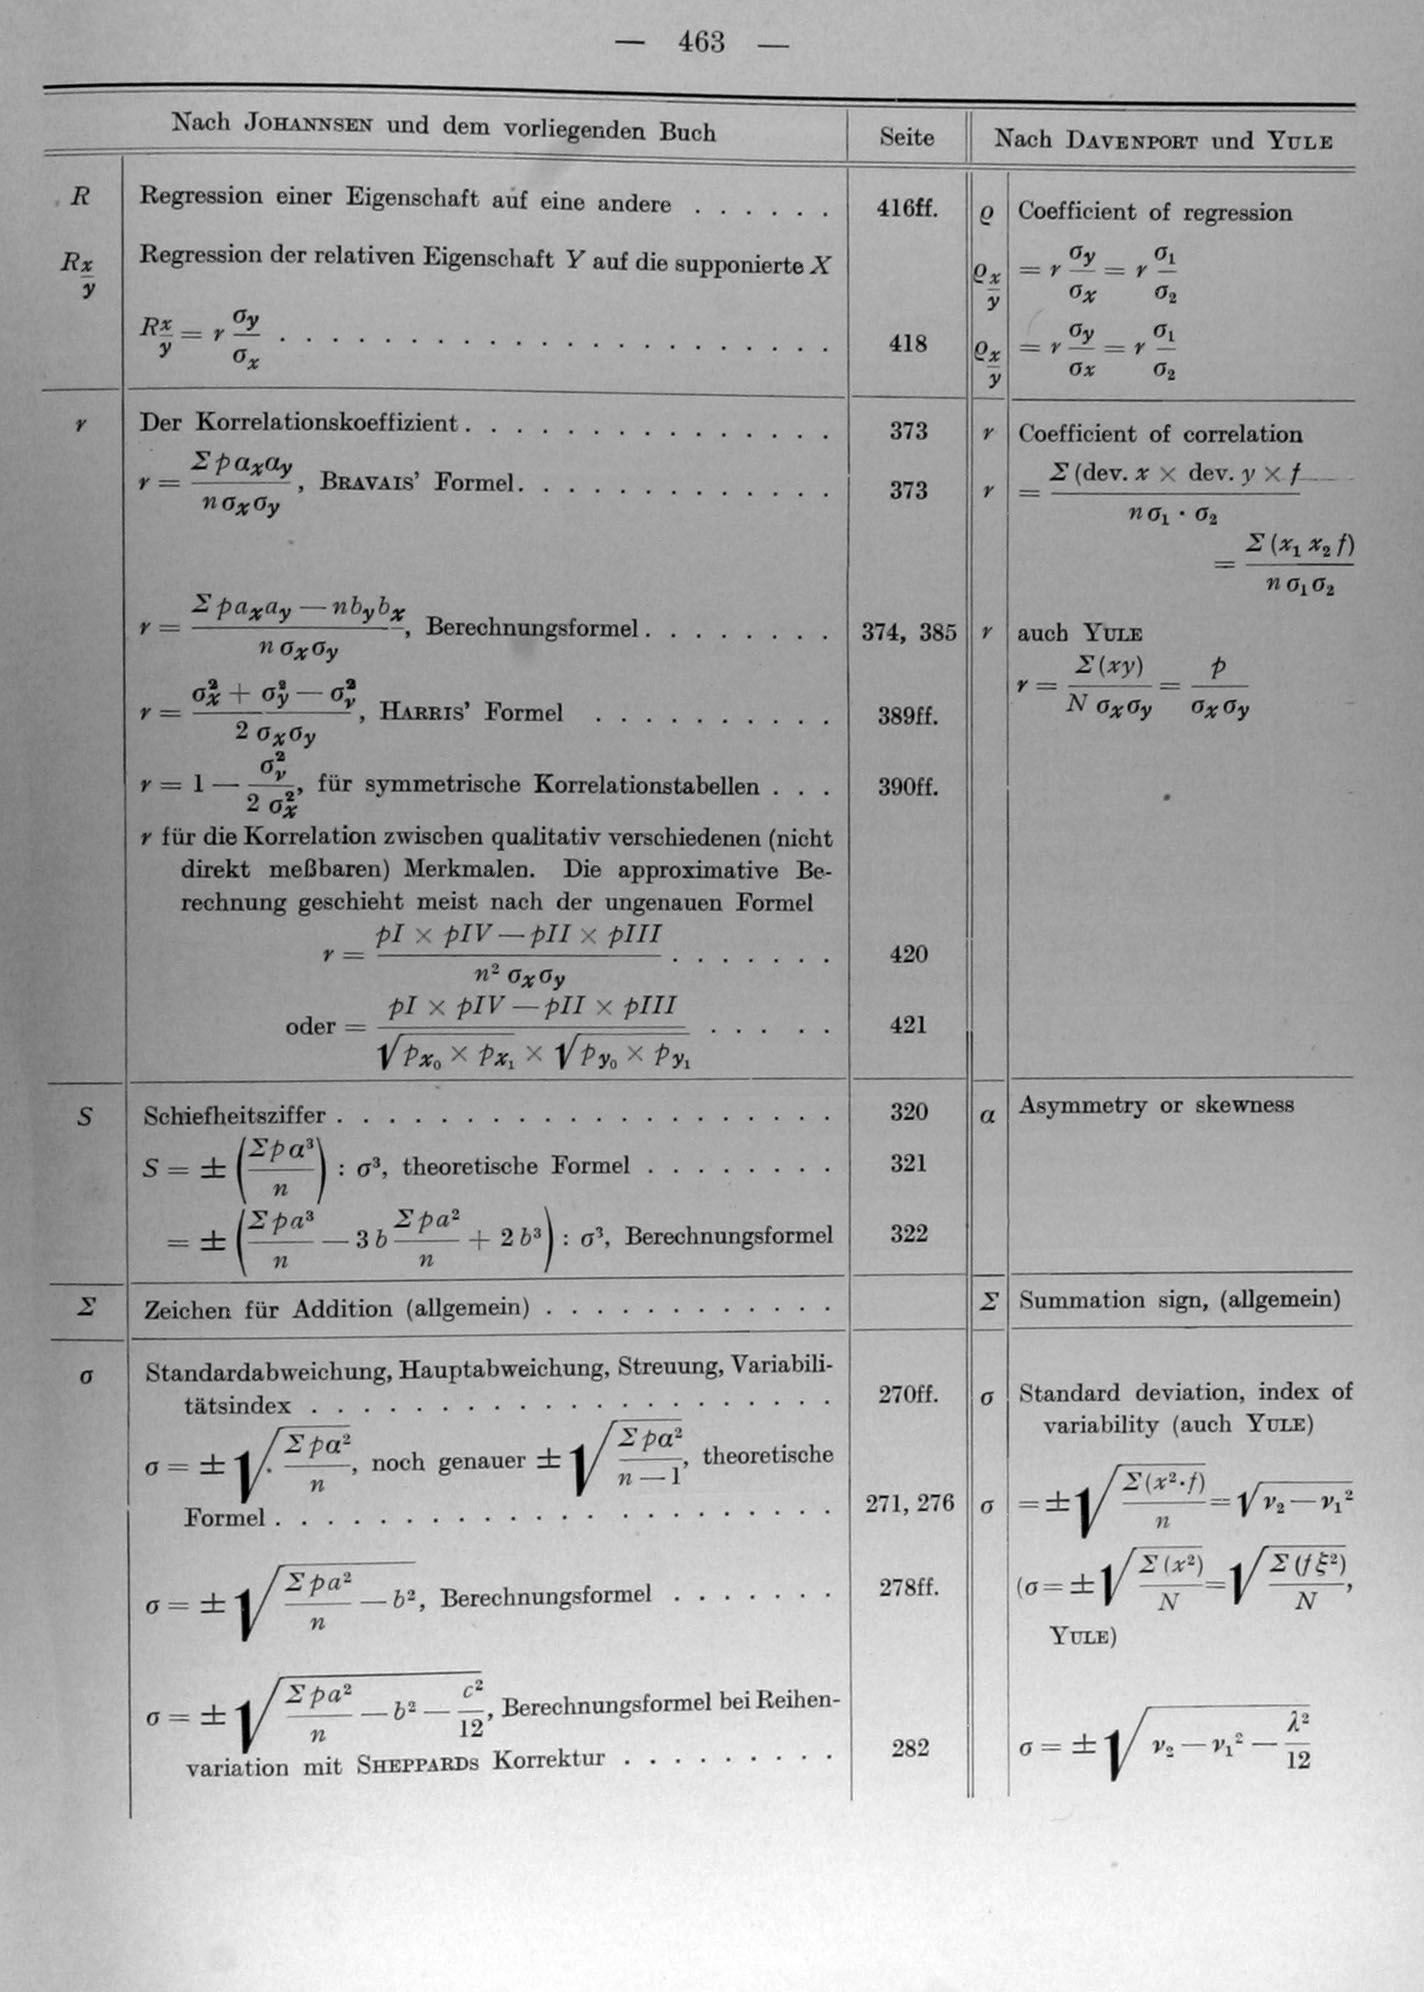 — 463 —
Nach JOHANNSEN und dem vorliegenden Buch | Seite | Nach DAVENPORT und YULE
R | Regression einer Eigenschaft auf eine andere . . . . . . | 416ff. | ϱ | Coefficient of regression
R x/y | Regression der relativen Eigenschaft Y auf die supponierte X | | ϱ x/y | = r σy/σx = r σ₁/σ₂
R x/y = r σy/σx . . . . . . . . . . . . . . . . . . . . . . | 418 | ϱ x/y | = r σy/σx = r σ₁/σ₂
r | Der Korrelationskoeffizient . . . . . . . . . . . . . . . | 373 | r | Coefficient of correlation
r = Σ p aₓ a_y / n σₓ σ_y , BRAVAIS’ Formel . . . . . . . . . . . . . | 373 | r | = Σ (dev. x × dev. y × f / n σ₁ · σ₂
= Σ (x₁ x₂ f) / n σ₁ σ₂
r = Σ p aₓ a_y — n b_y bₓ / n σₓ σ_y , Berechnungsformel . . . . . . . . | 374, 385 | r | auch YULE
r = Σ (xy) / N σₓ σ_y = p / σₓ σ_y
r = σₓ² + σ_y² — σ_v² / 2 σₓ σ_y , HARRIS’ Formel . . . . . . . . . . | 389ff.
r = 1 — σ_v² / 2 σₓ² , für symmetrische Korrelationstabellen . . . | 390ff.
r für die Korrelation zwischen qualitativ verschiedenen (nicht
direkt meßbaren) Merkmalen. Die approximative Be-
rechnung geschieht meist nach der ungenauen Formel
r = pI × pIV — pII × pIII / n² σₓ σ_y . . . . . . . | 420
oder = pI × pIV — pII × pIII / √(p x₀ × p x₁) × √(p y₀ × p y₁) . . . . . | 421
S | Schiefheitsziffer . . . . . . . . . . . . . . . . . . . . | 320 | α | Asymmetry or skewness
S = ± (Σ p α³ / n) : σ³, theoretische Formel . . . . . . . . | 321
= ± (Σ p a³ / n — 3 b Σ p a² / n + 2 b³) : σ³, Berechnungsformel | 322
Σ | Zeichen für Addition (allgemein) . . . . . . . . . . . . | | Σ | Summation sign, (allgemein)
σ | Standardabweichung, Hauptabweichung, Streuung, Variabili-
tätsindex . . . . . . . . . . . . . . . . . . . . . | 270ff. | σ | Standard deviation, index of
variability (auch YULE)
σ = ± √(Σ p a² / n), noch genauer ± √(Σ p a² / n — 1), theoretische
Formel . . . . . . . . . . . . . . . . . . . . . . | 271, 276 | σ | = ± √(Σ (x² · f) / n) = √(ν₂ — ν₁²)
σ = ± √(Σ p a² / n — b²), Berechnungsformel . . . . . . . | 278ff. | (σ = ± √(Σ (x²) / N) = √(Σ (f ξ²) / N),
YULE)
σ = ± √(Σ p a² / n — b² — c² / 12), Berechnungsformel bei Reihen-
variation mit SHEPPARDS Korrektur . . . . . . . . . | 282 | σ = ± √(ν₂ — ν₁² — λ² / 12)